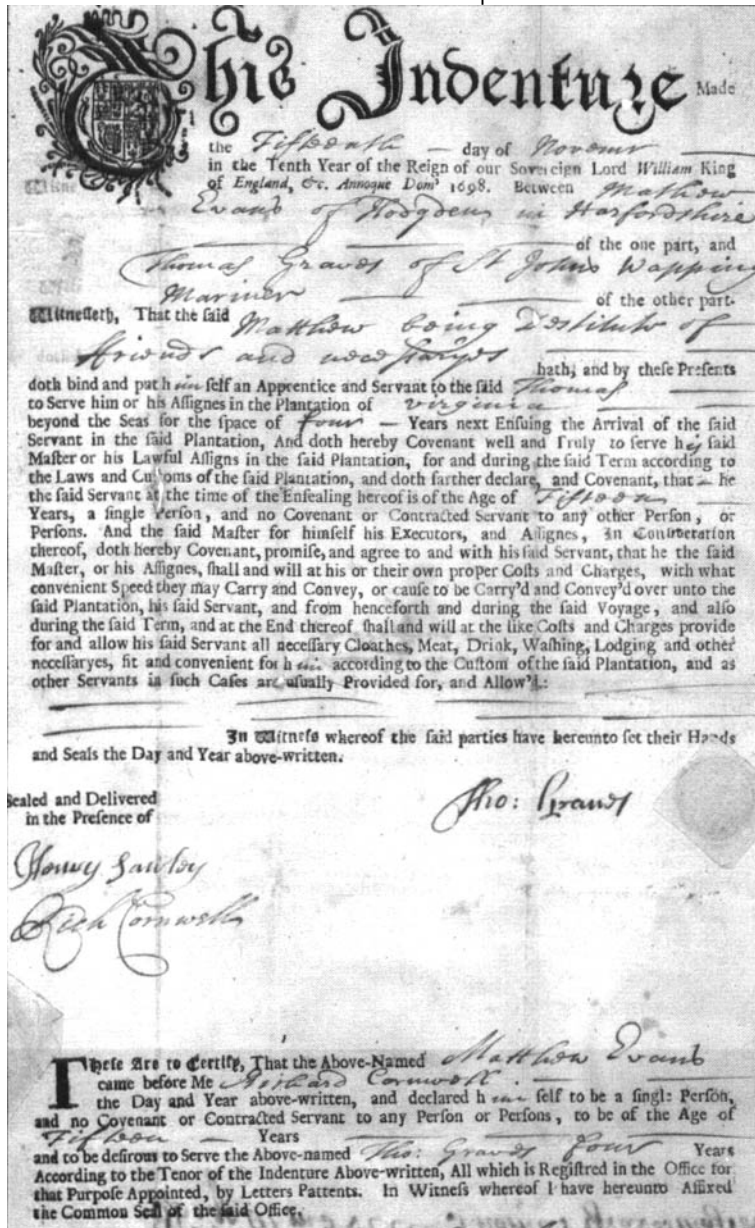 This Indenture Made
the Fifteenth — day of Novemr
in the Tenth Year of the Reign of our Sovereign Lord William King
of England, &c. Annoque Dom' 1698. Between Mathew
Evans of Hodgdens in Harfordshire
of the one part, and
Thomas Graves of St Johns Wapping
Mariner of the other part.
Witnesseth, That the said Matthew being Destitute of
friends and necessaryes hath, and by these Presents
doth bind and put himself an Apprentice and Servant to the said Thomas
to Serve him or his Assignes in the Plantation of virginia
beyond the Seas for the space of four — Years next Ensuing the Arrival of the said
Servant in the said Plantation, And doth hereby Covenant well and Truly to serve his said
Master or his Lawful Assigns in the said Plantation, for and during the said Term according to
the Laws and Customs of the said Plantation, and doth farther declare, and Covenant, that — he
the said Servant at the time of the Ensealing hereof is of the Age of Fifteen
Years, a single Person, and no Covenant or Contracted Servant to any other Person, or
Persons. And the said Master for himself his Executors, and Assignes, In Consideration
thereof, doth hereby Covenant, promise, and agree to and with his said Servant, that he the said
Master, or his Assignes, shall and will at his or their own proper Costs and Charges, with what
convenient Speed they may Carry and Convey, or cause to be Carry'd and Convey'd over unto the
said Plantation, his said Servant, and from henceforth and during the said Voyage, and also
during the said Term, and at the End thereof shall and will at the like Costs and Charges provide
for and allow his said Servant all necessary Cloathes, Meat, Drink, Washing, Lodging and other
necessaryes, fit and convenient for him according to the Custom of the said Plantation, and as
other Servants in such Cases are usually Provided for, and Allow'd:
In Witness whereof the said parties have hereunto set their Hands
and Seals the Day and Year above-written.
Sealed and Delivered
in the Presence of
Tho: Graves
Henry
Rich Cornwell
These Are to Certify, That the Above-Named Matthew Evans
came before Me Richard Cornwell
the Day and Year above-written, and declared himself to be a single Person,
and no Covenant or Contracted Servant to any Person or Persons, to be of the Age of
Fifteen — Years
and to be desirous to Serve the Above-named Tho: Graves four Years
According to the Tenor of the Indenture Above-written, All which is Registred in the Office for
that Purpose Appointed, by Letters Pattents. In Witness whereof I have hereunto Affixed
the Common Seal of the said Office.